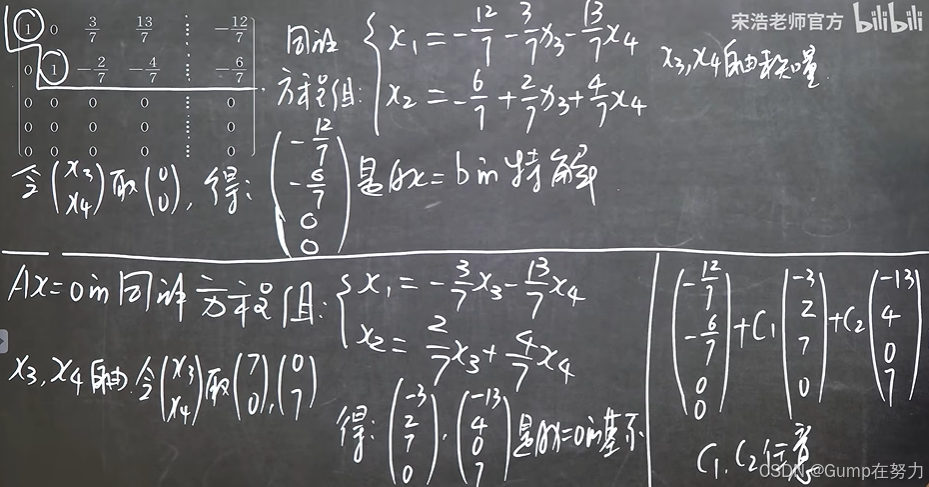 宋浩老师官方 bilibili
1 0 3/7 13/7 ⋮ -12/7
0 1 -2/7 -4/7 ⋮ -6/7
0 0 0 0 ⋮ 0
0 0 0 0 ⋮ 0
0 0 0 0 ⋮ 0
同解方程组: { x₁ = -12/7 - 3/7 x₃ - 13/7 x₄
x₂ = -6/7 + 2/7 x₃ + 4/7 x₄
x₃, x₄自由未知量
令 (x₃ x₄) 取 (0 0), 得: (-12/7 -6/7 0 0) 是Ax=b的特解
Ax=0的同解方程组: { x₁ = -3/7 x₃ - 13/7 x₄
x₂ = 2/7 x₃ + 4/7 x₄
x₃, x₄自由. 令 (x₃ x₄) 取 (7 0), (0 7)
得: (-3 2 7 0), (-13 4 0 7) 是Ax=0的基示
(-12/7 -6/7 0 0) + C₁ (-3 2 7 0) + C₂ (-13 4 0 7)
C₁, C₂任意
CSDN @Gump在努力